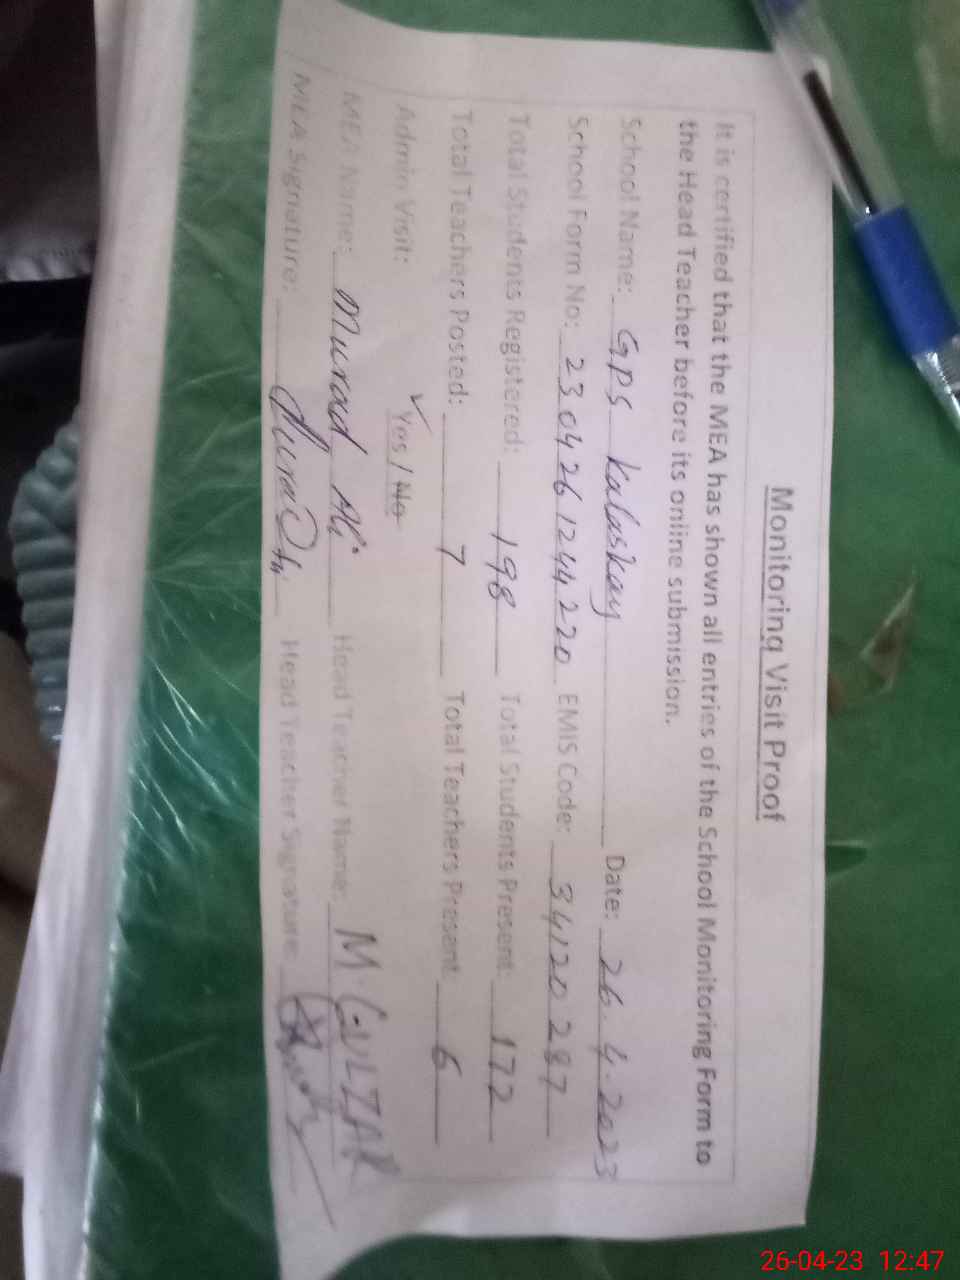 Monitoring Visit Proof
It is certified that the MEA has shown all entries of the School Monitoring Form to
the Head Teacher before its online submission.
School Name: GPS Kalaskay Date: 26.4.2023
School Form No: 23042612444220 EMIS Code: 34120287
Total Students Registered: 198 Total Students Present: 172
Total Teachers Posted: 7 Total Teachers Present: 6
Admin Visit: Yes / No
MEA Name: Murad Ali Head Teacher Name: M. GULZAR
MEA Signature: Head Teacher Signature:
26-04-23 12:47